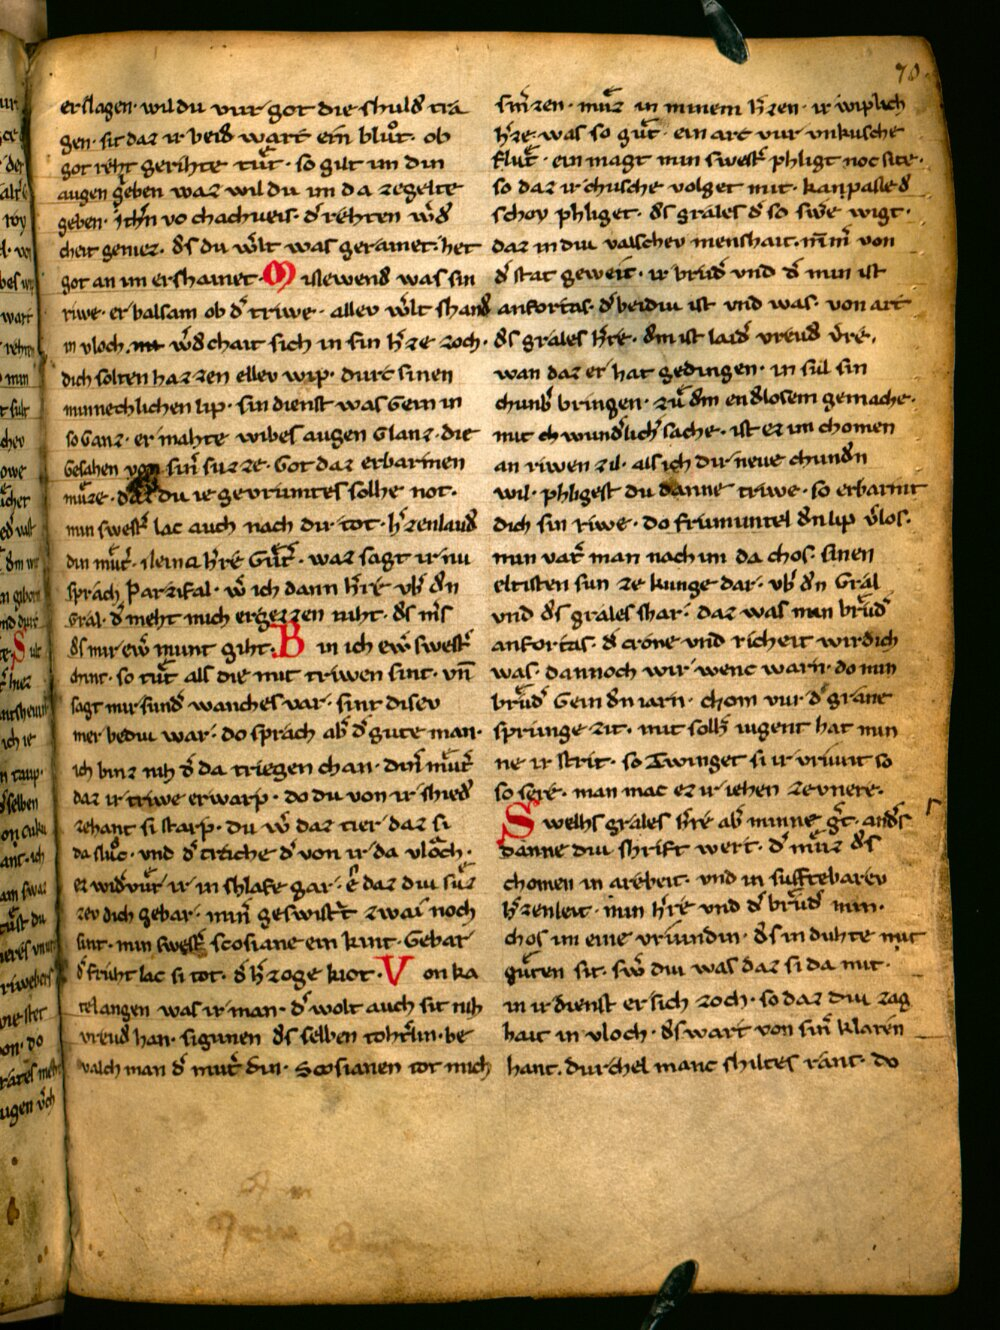 70.
erslagen· wil du vur got die shulđ tra
gen· sit daz ir beiđ wart ein̄ blůt· ob
got reht gerihte tůt· so gilt im din
augen geben waz wil du im da zegelte
geben· ithˀn vo chachueis· dˀ rehten wˀđ
cheit geniez· đs du wˀlt was gerainet· het
got an im ershainet· Mislewenđ was sin
riwe· er balsam ob dˀ triwe· allev wˀlt shanđ
in vloch. wˀđchait sich in sin hˀze zoch·
dich solten hazzen ellev wip· durc sinen
minnechlichen lip· sin dienst was Gein in
so Ganz· er mahte wibes augen Glanz· die
Gesahen von sinˀ suzze· Got daz erbarmen
můze· daz du ie gevrumtes solhe not·
min swestˀ lac auch nach dir tot· hˀzenlauđ
din můtˀ· neina hˀre Gůtˀ· waz sagt ir nu
sprach Parzifal· wˀ ich dann hˀre vbˀ đn
Gral· dˀ meht mich ergezzen niht· đs mˀs
đs mir ewˀ munt giht· Bin ich ewˀ swestˀ
chint· so tůt als die mit triwen sint· vn̄
sagt mir sunđ wanches var· sint disev
mer bediu war· do sprach abˀ dˀ gute man·
ich binz nih dˀ da triegen chan· dinˀ můtˀ
daz ir triwe erwarp· do du von ir shieđ
zehant si starp· du wˀ daz tier daz si
da slůc· vnd dˀ trache dˀ von ir da vlöch·
ez widˀvůr ir in shlafe gar· e daz diu sůz
zev dich gebar· minˀ geswistˀt zwai noch
sint· min swestˀ scosiane ein kint· Gebar
dˀ fruht lac si tot· dˀ hˀzoge kiot· Von ka
telangen was ir man· dˀ wolt auch sit nih
vreuđ han· sigunen đs selben tohtˀlin· be
valch man dˀ můtˀ din· Scosianen tot mich
smˀzen· můz in minem hˀzen· ir wiplich
hˀze· was so gůt· ein arc vur vnkusche
flůt· ein magt min swestˀ phligt noc site·
so daz ir chusche volget mit· kanpasse đ
schoy phliget· đs grales đ so swˀe wigt·
daz in diu valschev menshait· nimˀ von
dˀ stat geweit· ir brůdˀ vnd dˀ min ist
anfortas· dˀ beidiu ist vnd was· von art
đs grales hˀre· đm ist laiđ vreuđ vˀre,
wan daz er hat gedingen· in sül sin
chunbˀ bringen· zů đm enđlosem gemache·
mit chwundˀlichˀ sache· ist ez im chomen
an riwen zil· als ich dir neue chunđn
wil· phligest du danne triwe· so erbarmt
dich sin riwe· do frimuntel đn lip vˀlos·
min vatˀ man nach im da chos· sinen
eltisten sun ze kunge dar· vbˀ đn Gral
vnd đs grales shar· daz was min brůdˀ
anfortas· đ crone vnd richeit wirdich
was· dannoch wir wenc warn· do min
brůdˀ Gein đn iarn· chom vur dˀ grane
springe zit· mit solhˀ iugent hat min
ne ir strit· so Twinget si ir vriunt so
so sere· man mac ez ir iehen ze vnere·
Swelhs grales hˀre abˀ minne gˀt· andˀs
danne diu shrift wert· dˀ můz đs
chomen in arebeit· vnd in sufftebarev
hˀzenleit· min hˀre vnd dˀ brůdˀ min·
chos im eine vriundin· đs in duhte mit
gůten sit· swˀ diu was daz si da mit·
in ir dienst er sich zoch· so daz diu zag
hait in vloch· đs wart von sinˀ klaren
hant. durchel manc shiltes rant· do